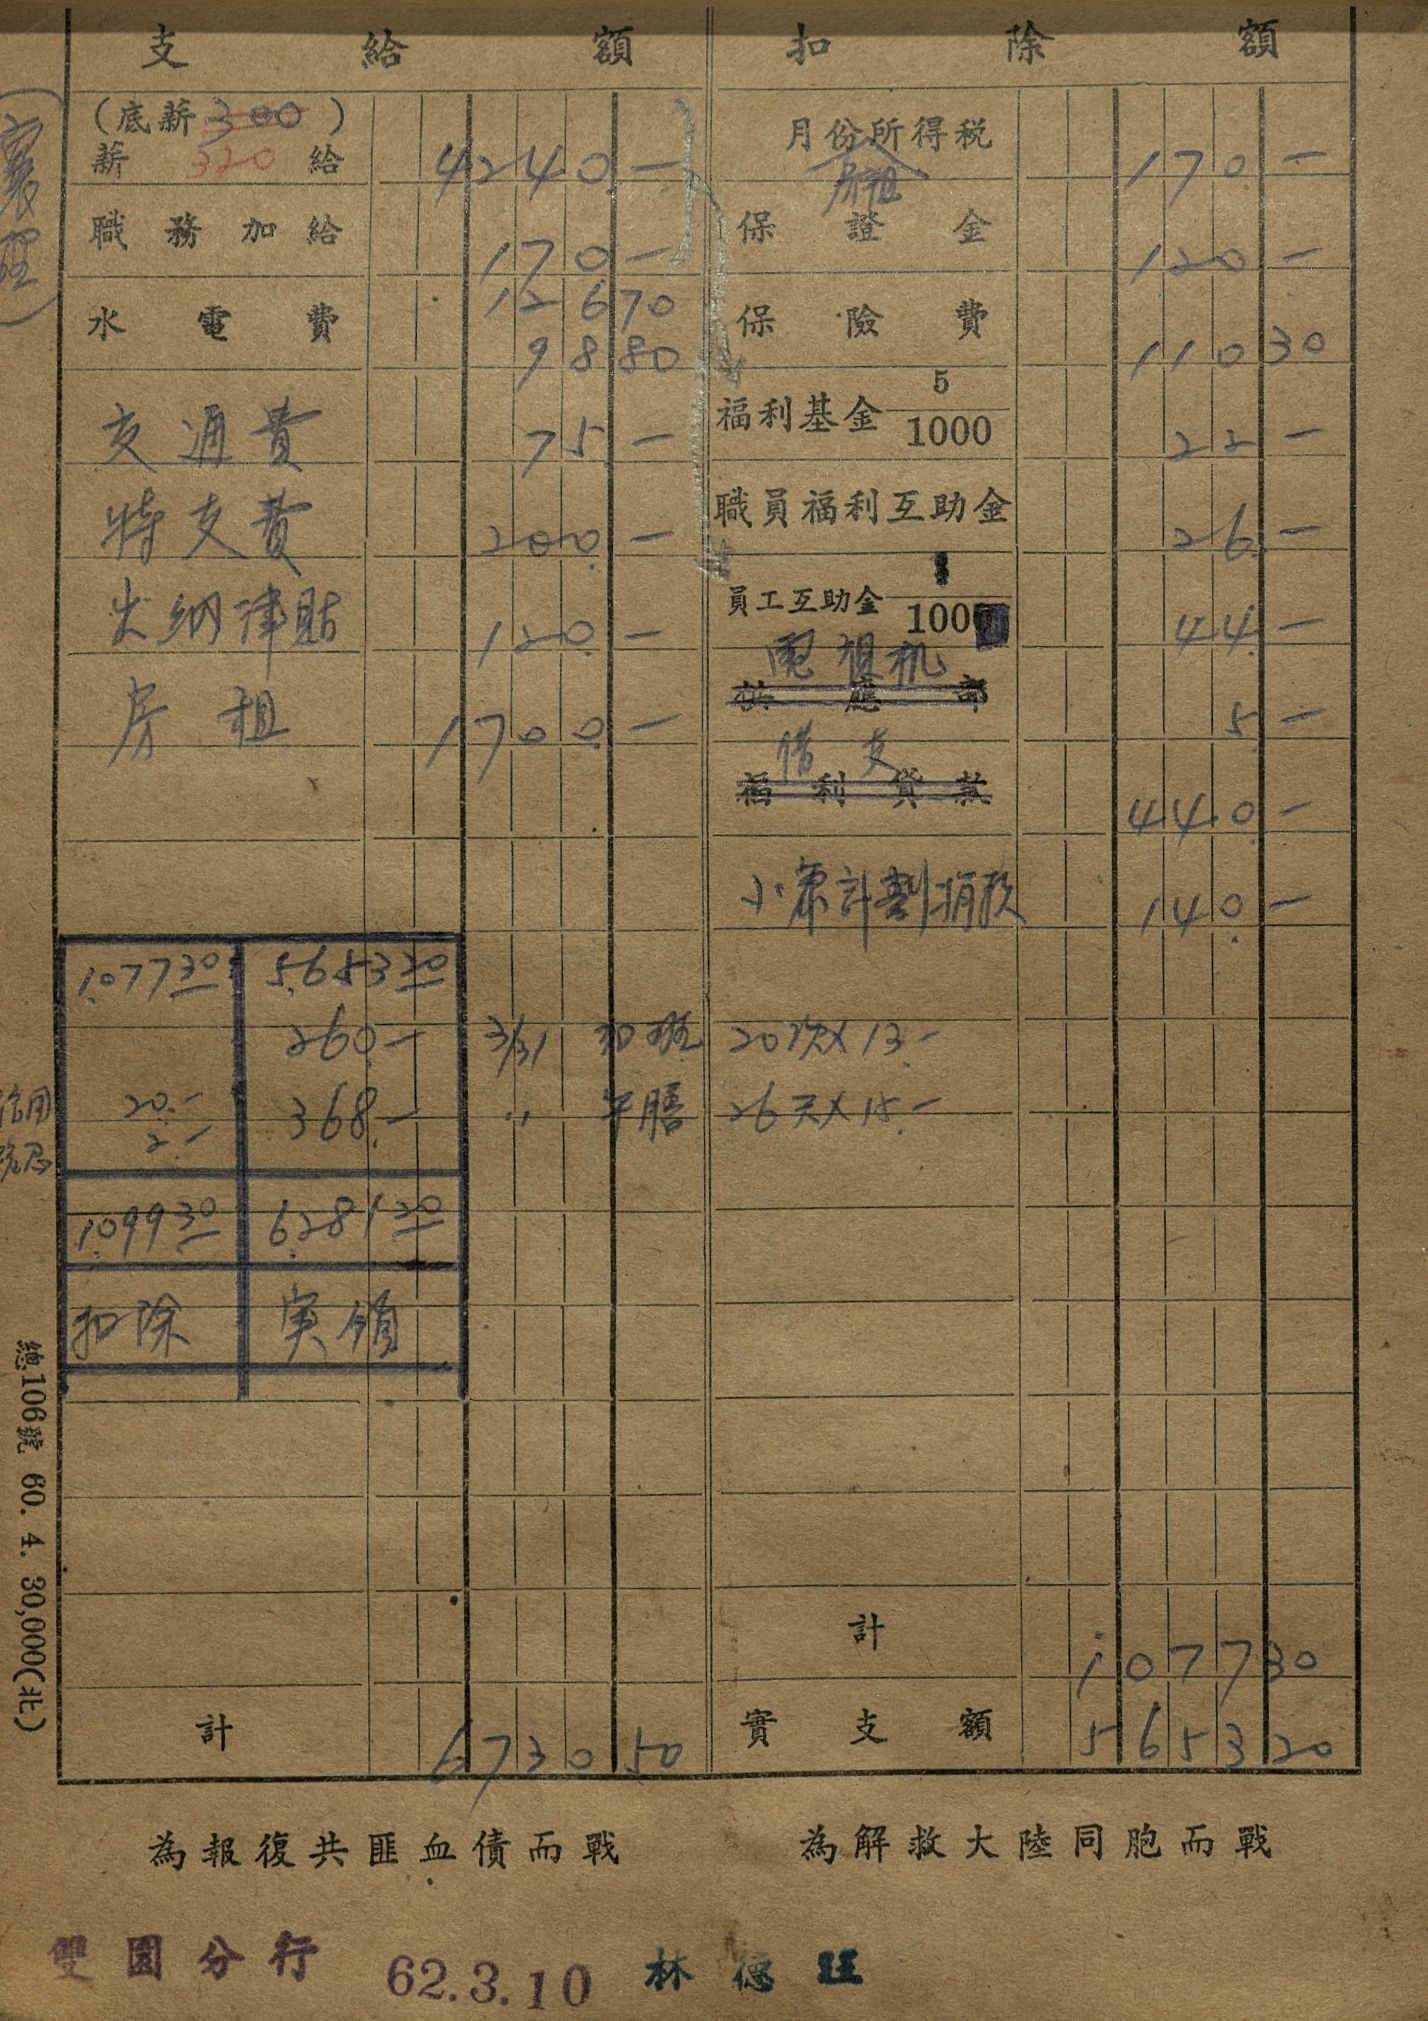 支給額 扣除額
(底薪 300)
薪 320 給 4240 —
月份所得税 170. —
職務加給 170 —
房租
保證金 120 —
水電費 12670
9880
保險費 11030
交通費 75 —
福利基金 5/1000 22 —
特支費 200. —
職員福利互助金 26. —
出納津貼 120. —
員工互助金 /100 44. —
房租 1700. —
電視机
供應部 5. —
借支
福利貸款 440. —
小康計劃捐款 140. —
1.07730 5.65320
260. — 3/31 加班 20次×13. —
信用 20. — 368. — 〃 午膳 26天×15. —
2. —
1.09930 6.28120
扣除 実領
計 1077 30
計 6730 50
實支額 5653 20
(襄理)
總106號 60. 4. 30,000(北)
為報復共匪血債而戰 為解救大陸同胞而戰
雙園分行 62.3.10 林德旺